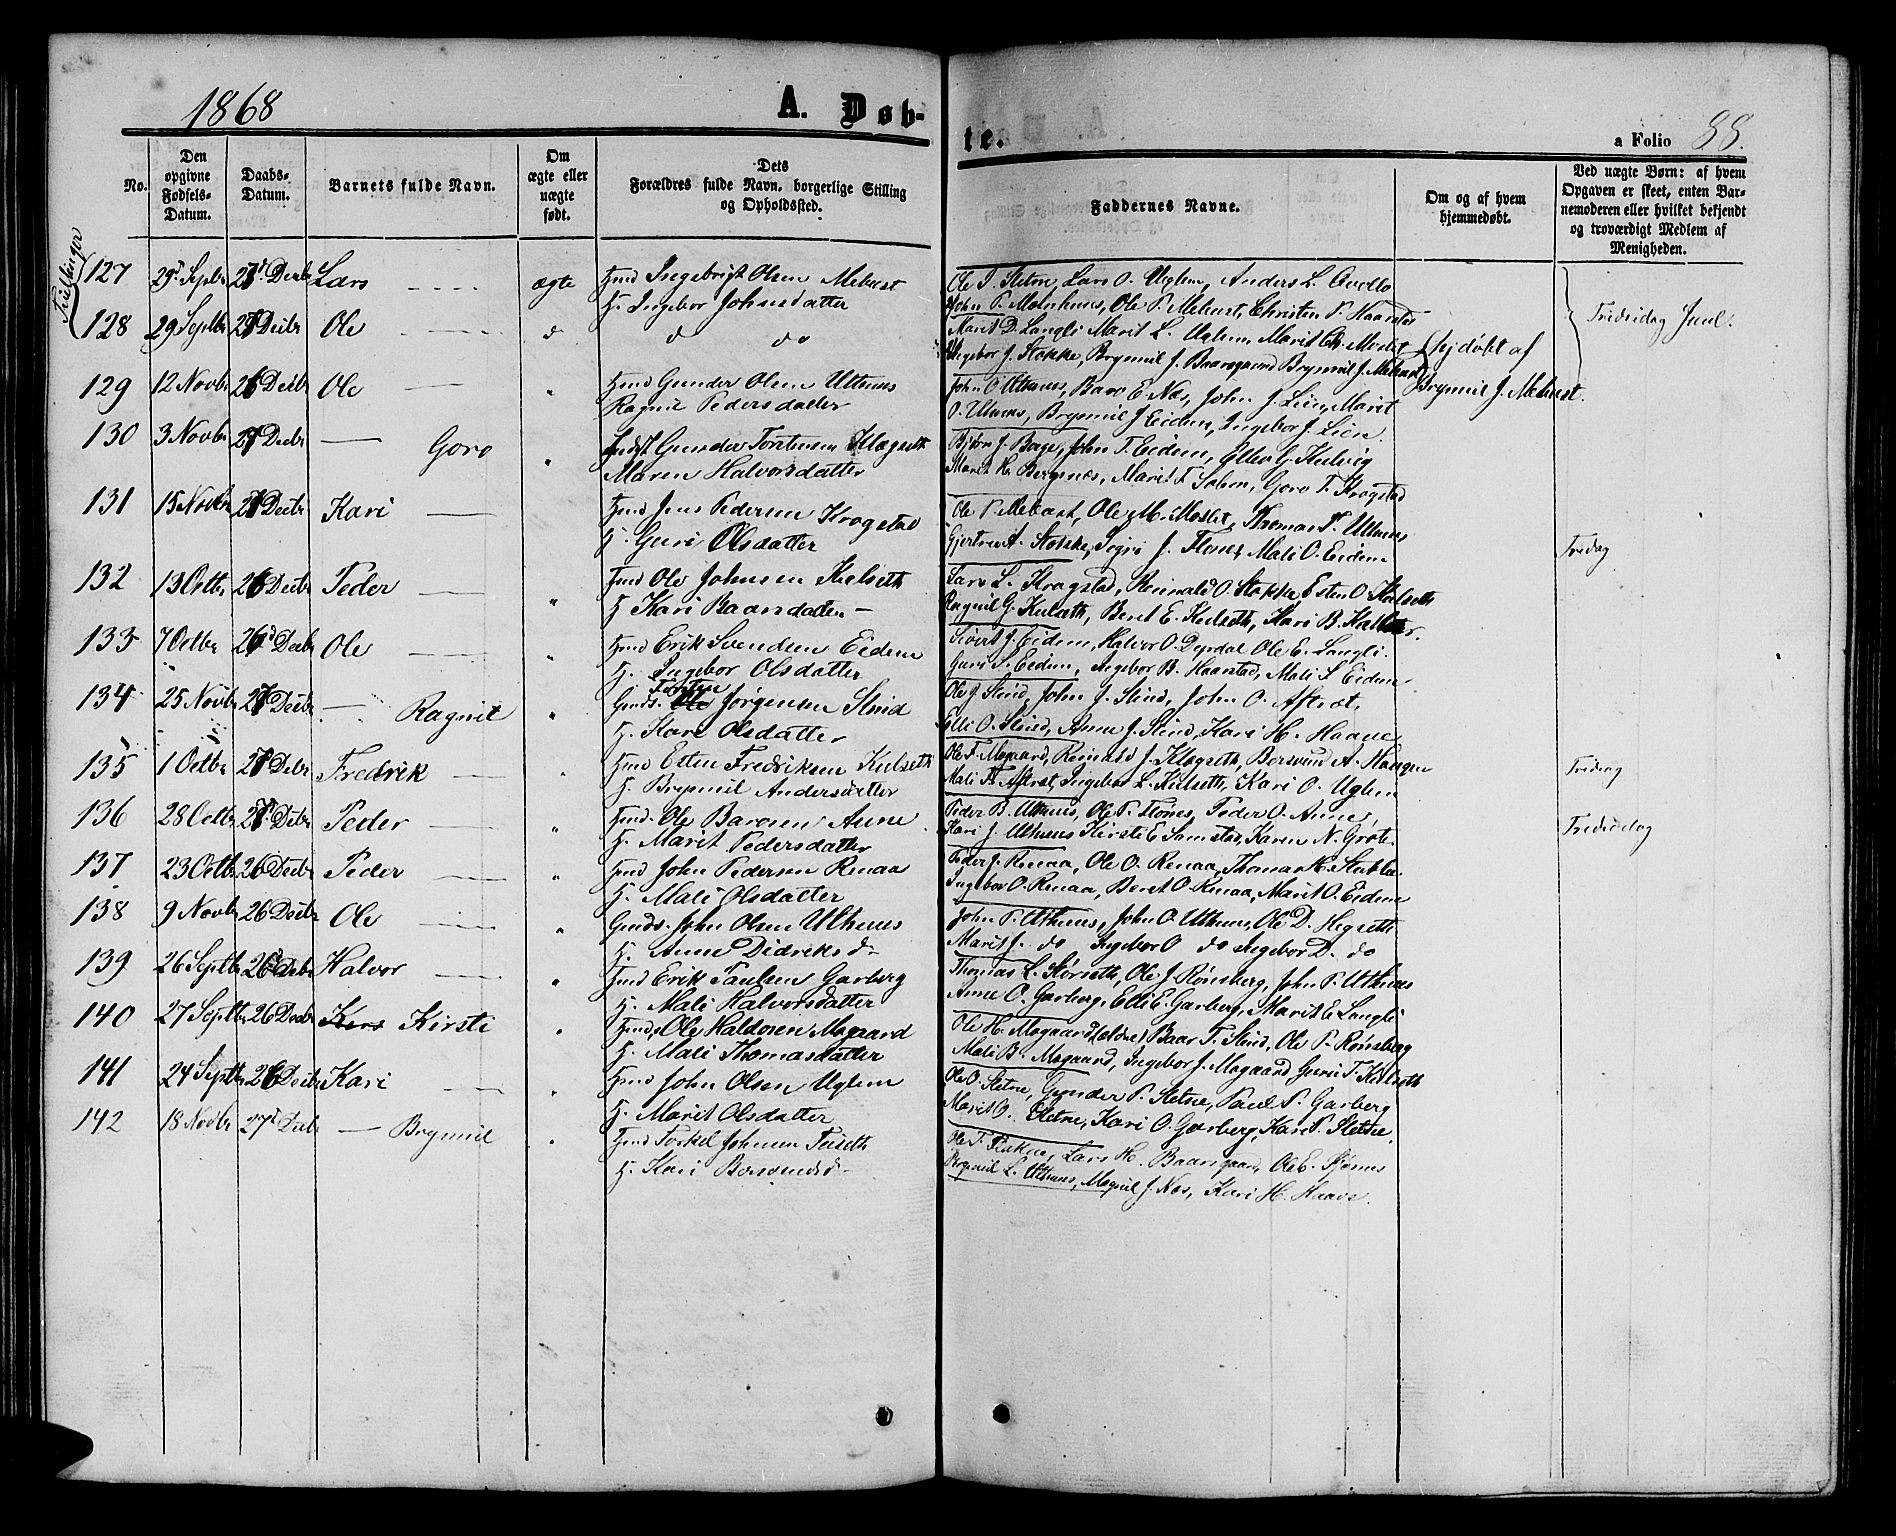 1868
A. Døb-
te.
a Folio 88.
No.
Den opgivne Fødsels-Datum.
Daabs-Datum.
Barnets fulde Navn.
Om ægte eller uægte født.
Dets Forældres fulde Navn, borgerlige Stilling og Opholdssted.
Faddernes Navne.
Om og af hvem hjemmedøbt.
Ved uægte Børn: af hvem Opgaven er skeet, enten Bar-nemoderen eller hvilket bekjendt og troværdigt Medlem af Menigheden.
Tvillinger
127 29 Septbr 27 Decbr Lars ægte Hmd Ingebrigt Olsen Mebust
H. Ingebor Johnsdatter
Ole J. Sletne, Lars O. Uglem, Anders L.
John P. Molnhuus, Ole P. Mebust, Christen P. Haarstad
128 29 Septbr 27 Decbr Ole d d do
Marit D. Langli Marit L. Uglem, Marit Moslet
Ingebor J. Stokke, Brynnil J. Baarsgaard Brynnil J. Mebust
Hjdøbt af
Brynnil J. Mebust.
Tredidag Juul.
129 12 Novbr 26 Decbr Ole " Hmd Gunder Olsen Uthuus
Ragnil Pedersdatter
John O Uthuus, Baro E. Næs, John J. Lien, Marit
O. Uthuus, Brynnil J. Eidem, Ingebor J. Lien.
130 3 Novbr 27 Decbr Goro " Gunder Torstensen Klegseth
Maren Halvorsdatter
Bjørn J. Bage, John T. Eidem, Kulvig
Marit H. Bergsnes, Marit F. Solem, Goro T. Krogstad
131 15 Novbr 27 Decbr Kari Hmd Jens Pedersen Krogstad
H. Guri Olsdatter
Ole P. Mebust, Ole M. Moslet, Thomas T. Uthuus
A. Stokke, Sigri J. Flones Mali O. Eidem
Tredag
132 13 Octbr 26 Decbr Peder " Hmd Ole Johnsen Kulseth
H. Kari Baarsdatter
Lars L. Kragstad, Reinald O. Stokke Esten O. Kulseth
Ragnil G. Kulseth, Beret E. Kulseth, Kari B.
133 7 Octbr 26 Decbr Ole " Hmd Erik Svendsen Eidem
H. Ingebor Olsdatter
Sivert J. Eidem, Halvor O. Dyrdal Ole E. Langli.
Guru S. Eidem, Ingebor B. Haarstad, Mali L. Eidem
134 25 Novbr 27 Decbr Ragnil " Gmds. Torsten Jørgensen Slind
H. Kari Olsdatter
Ole J. Slind, John J. Slind, John O. Aftret,
Elli O. Slind, Anne J. Slind, Kari H. Haave
135 1 Octbr 27 Debr Fredrik " Hmd Esten Fredriksen Kulseth
H. Brynnil Andersdatter
Ole F. Mogaard, Reinald J. Klegseth, Borsvend A. Haugen
Mali Aftret, Ingebor L. Kulseth, Kari O. Uglem
Tredag
136 28 Octbr 27 Debr Peder " Hmd. Ole Barosen Aune
H. Marit Pedersdatter
Peder B. Uthuus, Ole P. Flones, Peder O. Aune,
Kari J. Uthuus Kirsti E. Samstad, Karen N. Grøte.
Tredidag
137 23 Octbr 26 Decbr Peder " Hmd John Pedersen Renaa
H. Mali Olsdatter
Peder J. Renaa, Ole O. Renaa, Thomas H. Stubbe
Ingebor O. Renaa, Beret O. Renaa, Marit O. Eidem
138 9 Novbr 26 Decbr Ole " Gmds. John Olsen Uthuus
H. Anne Didriksd.
John P. Uthuus, John O. Uthuus, Ole D. Hegseth
Marit J. do Ingebor O do Ingebor D. do
139 26 Septbr 26 Debr Halvor " Hmd Erik Paulsen Garberg
H. Mali Halvorsdatter
Thomas L. Størseth, Ole J. Rønsberg, John P. Uthuus
Anne O. Garberg, Elli E. Garberg, Marit E. Langli
140 27 Septbr 26 Decbr Kirsti " Hmds. Ole Haldosen Mogaard
H. Mali Thomasdatter
Ole H. Mogaard (ældre) Baar T. Slind, Ole P. Rønsberg
Mali B. Mogaard, Ingebor J. Mogaard Guru T. Kulseth
141 24 Septbr 26 Decbr Kari " Hmd John Olsen Uglem
H. Marit Olsdatter
Ole O. Sletne, Gunder P. Sletne, Paul P. Garberg
Marit O. Sletne, Kari O. Garberg, Kari P. Sletne
142 18 Novbr 27 Decbr Brynnil " Hmd Torkel Johnsen Teiseth
H. Kari Borsvendsd.
Ole T. Lars H. Baarsgaard, Ole E. Fjønes
Brynnil L. Uthuus, Magnil J. Næs, Kari H. Haave.